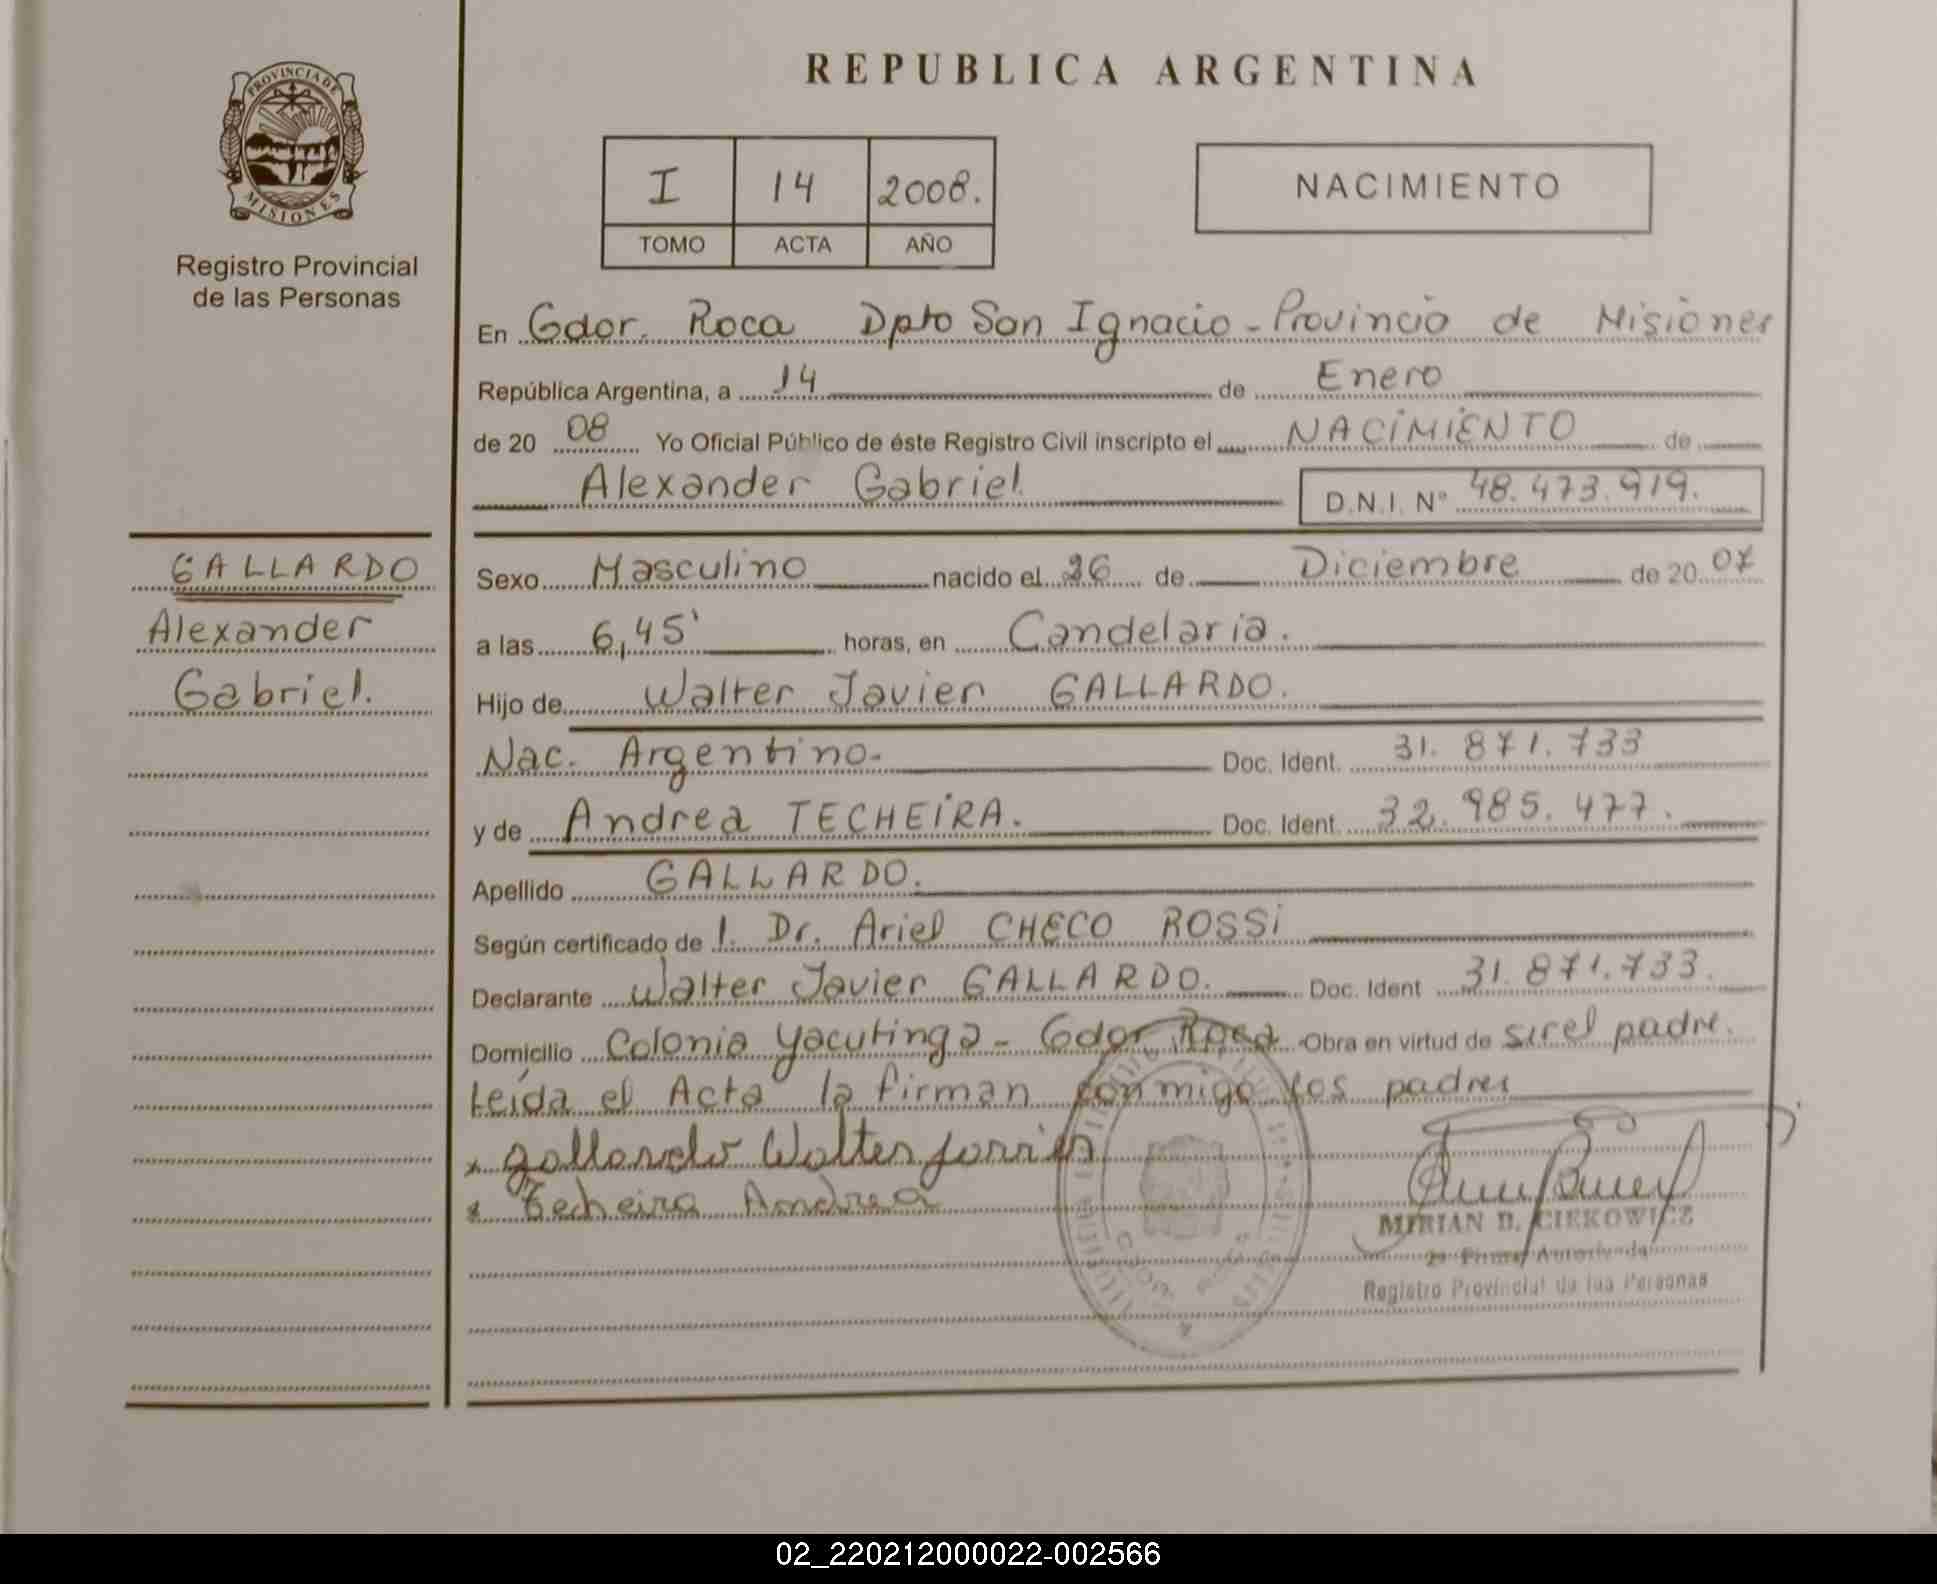 REPUBLICA ARGENTINA
PROVINCIA DE
MISIONES
Registro Provincial
de las Personas
I 14 2008.
TOMO ACTA AÑO
NACIMIENTO
En Gdor. Roca Dpto San Ignacio - Provincia de Misiones
República Argentina, a 14 de Enero
de 20 08 Yo Oficial Público de éste Registro Civil inscripto el NACIMIENTO de
Alexander Gabriel D.N.I. Nº 48.473.919.
GALLARDO
Alexander
Gabriel.
Sexo Masculino nacido el 26 de Diciembre de 20 07
a las 6,45' horas, en Candelaria.
Hijo de Walter Javier GALLARDO.
Nac. Argentino. Doc. Ident. 31.871.733
y de Andrea TECHEIRA. Doc. Ident. 32.985.477.
Apellido GALLARDO.
Según certificado de 1. Dr. Ariel CHECO ROSSI
Declarante Walter Javier GALLARDO. Doc. Ident 31.871.733.
Domicilio Colonia Yacutinga - Gdor Roca Obra en virtud de ser el padre.
Leída el Acta la firman conmigo los padres
x gallardo Walter Javier
x Techeira Andrea
MIRIAN D. CIEKOWICZ
2ª Firma Autorizada
Registro Provincial de las Personas
02_220212000022-002566